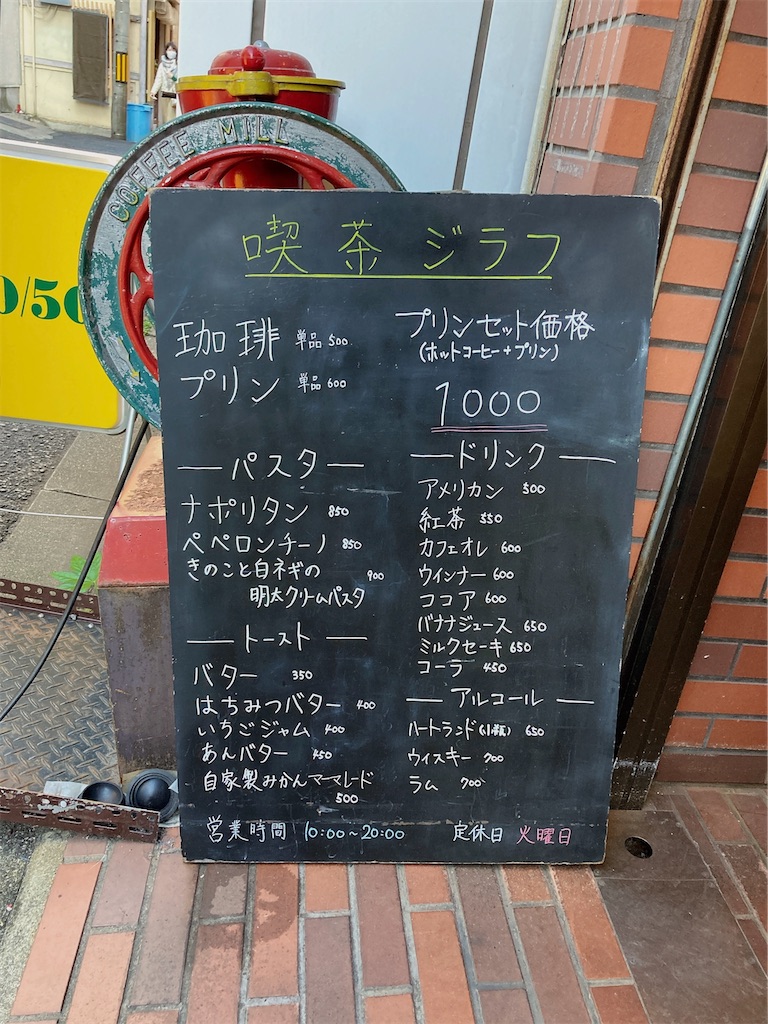 COFFEE MILL
0/50
喫茶ジラフ
珈琲 単品 500
プリン 単品 600
プリンセット価格
(ホットコーヒー+プリン)
1000
—パスタ—
ナポリタン 850
ペペロンチーノ 850
きのこと白ネギの 900
明太クリームパスタ
—トースト—
バター 350
はちみつバター 400
いちごジャム 400
あんバター 450
自家製みかんマーマレード
500
—ドリンク—
アメリカン 500
紅茶 550
カフェオレ 600
ウインナー 600
ココア 600
バナナジュース 650
ミルクセーキ 650
コーラ 450
—アルコール—
ハートランド(小瓶) 650
ウィスキー 700
ラム 700
営業時間 10:00~20:00 定休日 火曜日